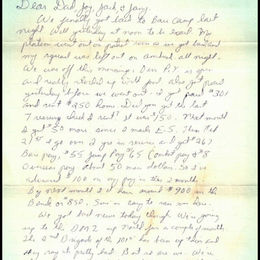 Dear Dad, Joy, Jack, & Jany,
We finally got back to Base Camp last
night. Well yesterday at noon to be exact. My
platoon went out on patrol soon as we got
my squad was left out on ambush all night.
We are off this morning. Den P.F. is gone
and really stocked up with food. Also got paid
yesterday before we went out. I got paid $301
and sent $250 home. Did you get the last
7 money order I sent of $150. Next month
I get 50 more since I made E-5. Then Feb
21st I go over 2 yrs in service and get $261
Base pay, $55 jump pay $65 Combat pay $8
Overseas pay. About 50 more dollars. So I
advanced $100 on my pay in this 2 months.
By next month I'll have around $900 in the
Bank or 850. Sure is easy to save over here.
We got bad news today though. We're going
up to the DMZ up North for a couple month
The 2nd Brigade of the 101st has been up there and
they say it's pretty bad. But so are we. We're